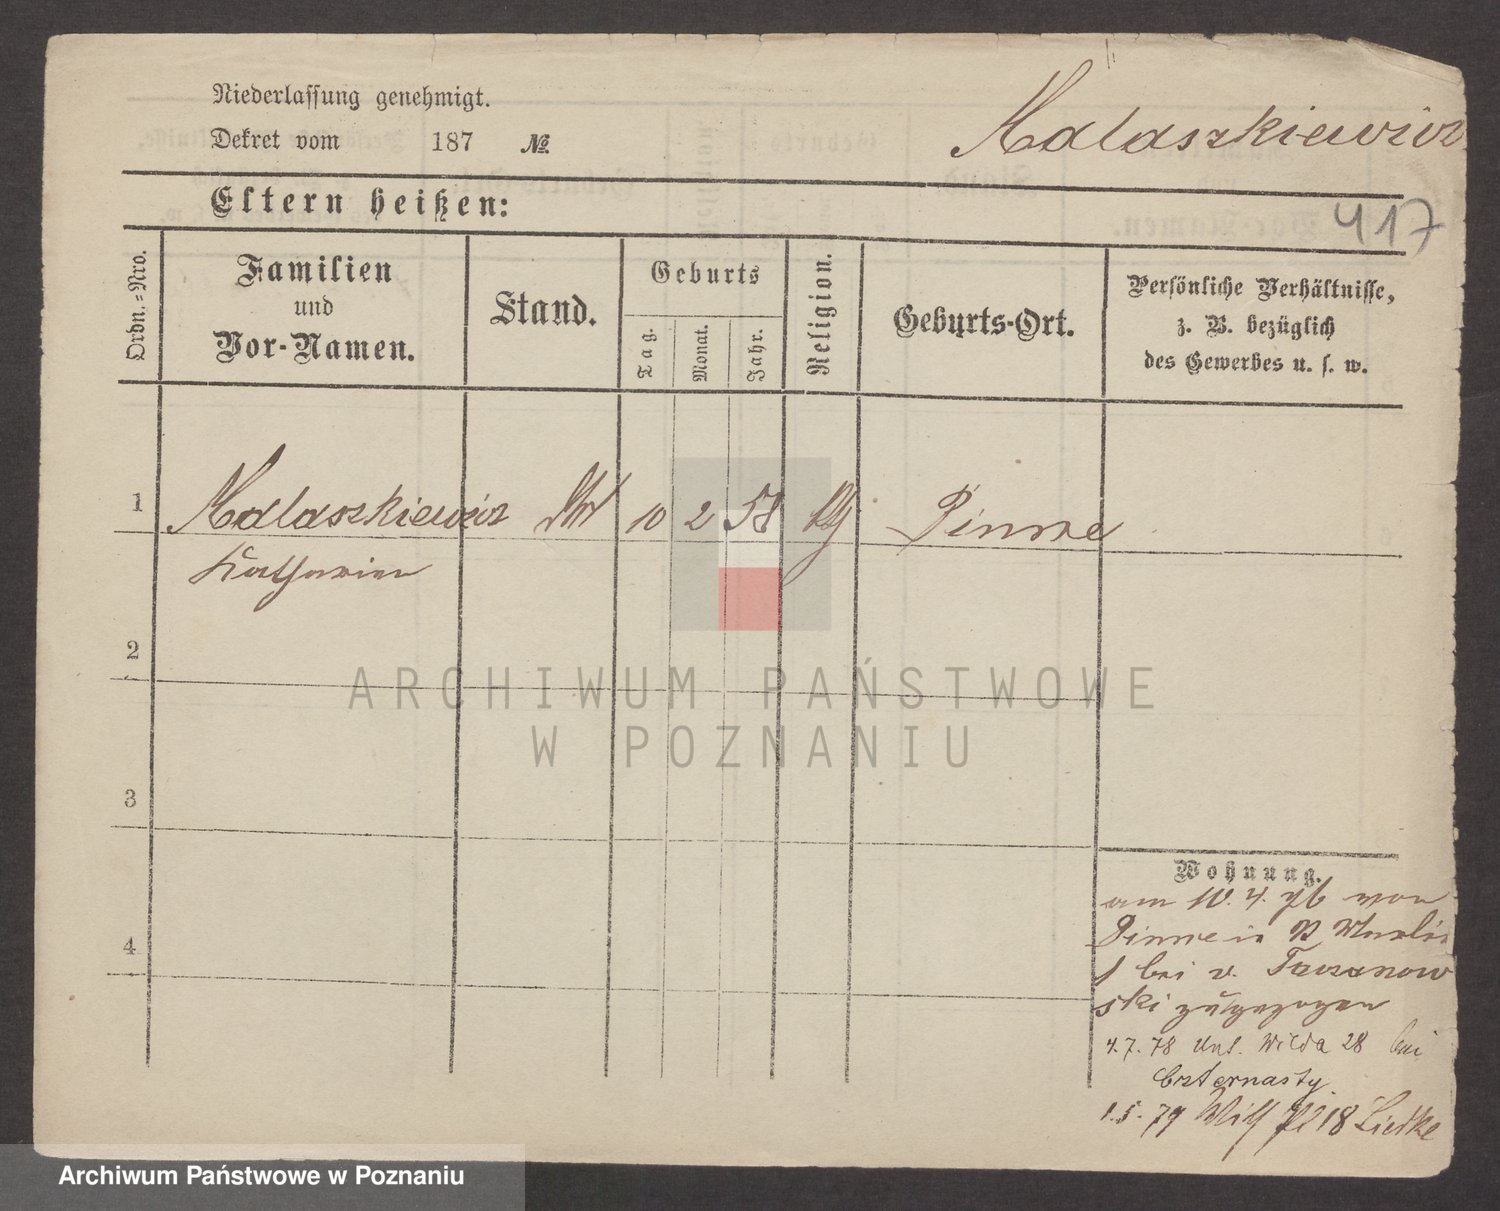 Niederlassung genehmigt.
Dekret vom 187 №
Malaszkiewicz
Eltern heißen:
417
Ordn.=Nro.
Familien
und
Vor-Namen.
Stand.
Geburts
Tag.
Monat.
Jahr.
Religion.
Geburts-Ort.
Persönliche Verhältnisse,
z. B. bezüglich
des Gewerbes u. s. w.
1 Malaszkiewicz 10 2 58 Pinne
Katharina
2
3
4
Wohnung.
am 10. 4. 76 von
Pinne in
bei v. Taczanow
ski zugezogen
4. 7. 78 Unt. Wilda 28 bei
Czternasty
1. 5. 79 Wilh Pl 18 Liedke
ARCHIWUM PAŃSTWOWE
W POZNANIU
Archiwum Państwowe w Poznaniu